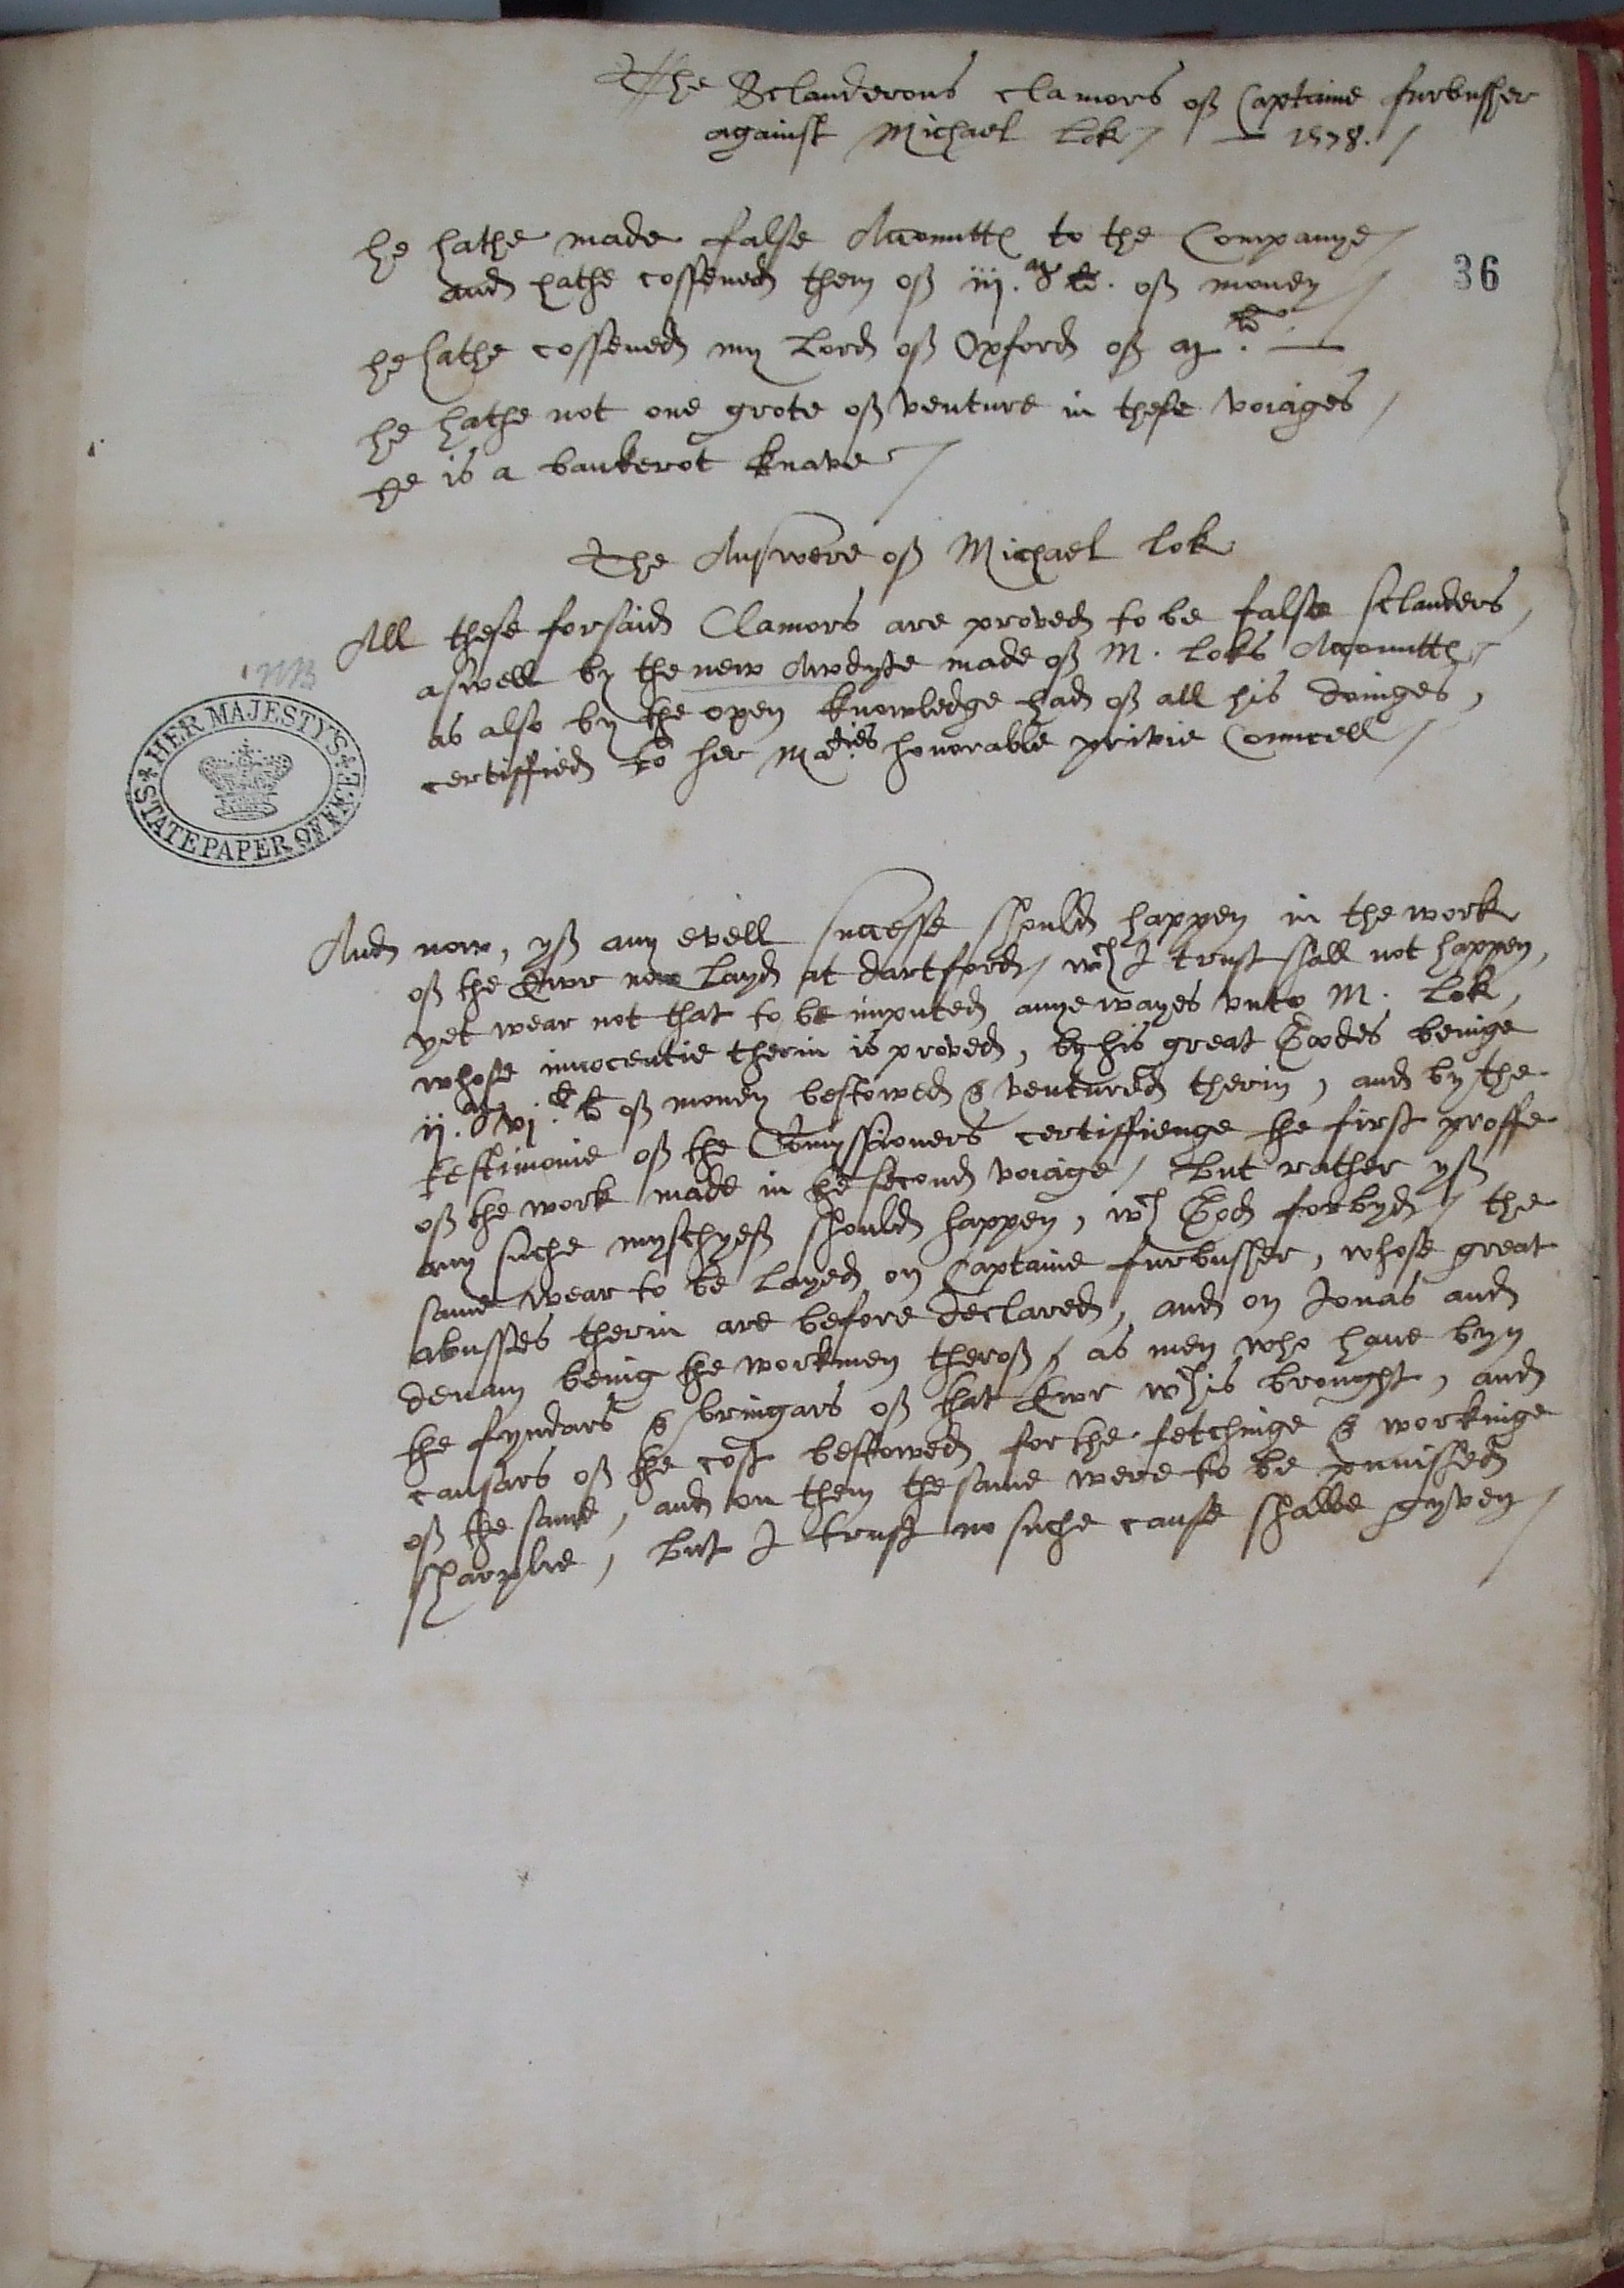 The Sclanderous clamors of Captaine furbussher
against Michael Lok / — 1578. /
36
he hathe made false Accountt to the Companye /
and hathe cossened them of iij. M £. of money /
he hathe cossened my Lord of Oxford of M £. —
he hathe not one grote of venture in these voiages /
he is a bankerot knave /
The Answere of Michael Lok
All these forsaid Clamors are proved to be false sclanders,
aswell by the new Awdyte made of M. Loks Accountt /
as also by the open knowledge had of all his doinges,
certiffied to her Maties honorable privie Councell /
NB
HER MAJESTY'S STATE PAPER OFFICE
And now, yf any evell successe should happen in the work
of the Ewr now layd at dartford / wch I trust shall not happen,
yet wear not that to be imputed anye wayes unto M. Lok,
whose innocentie therin is proved, by his great Goodes beinge
ij. M vj. c £ of money bestowed & ventured therin, and by the
testimonie of the Comyssioners certiffienge the first proffe
of the work made in the second voiage / But rather yf
any suche myschyef should happen, wch God forbyd / the
same wear to be layed on Captaine furbussher, whose great
abusses therin are before declared, and on Jonas and
denam being the workmen therof & as men who have byn
the fyndars & bringars of that Ewr wch is brought, and
causars of the cost bestowed for the fetchinge & workinge
of the same, and on them the same were to be punisshed
sharplie, but I trust no suche cause shalbe gyven /